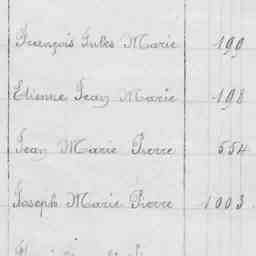 François Jules Marie 199
Etienne Jean Marie 198
Jean Marie Pierre 554
Joseph Marie Pierre 1003